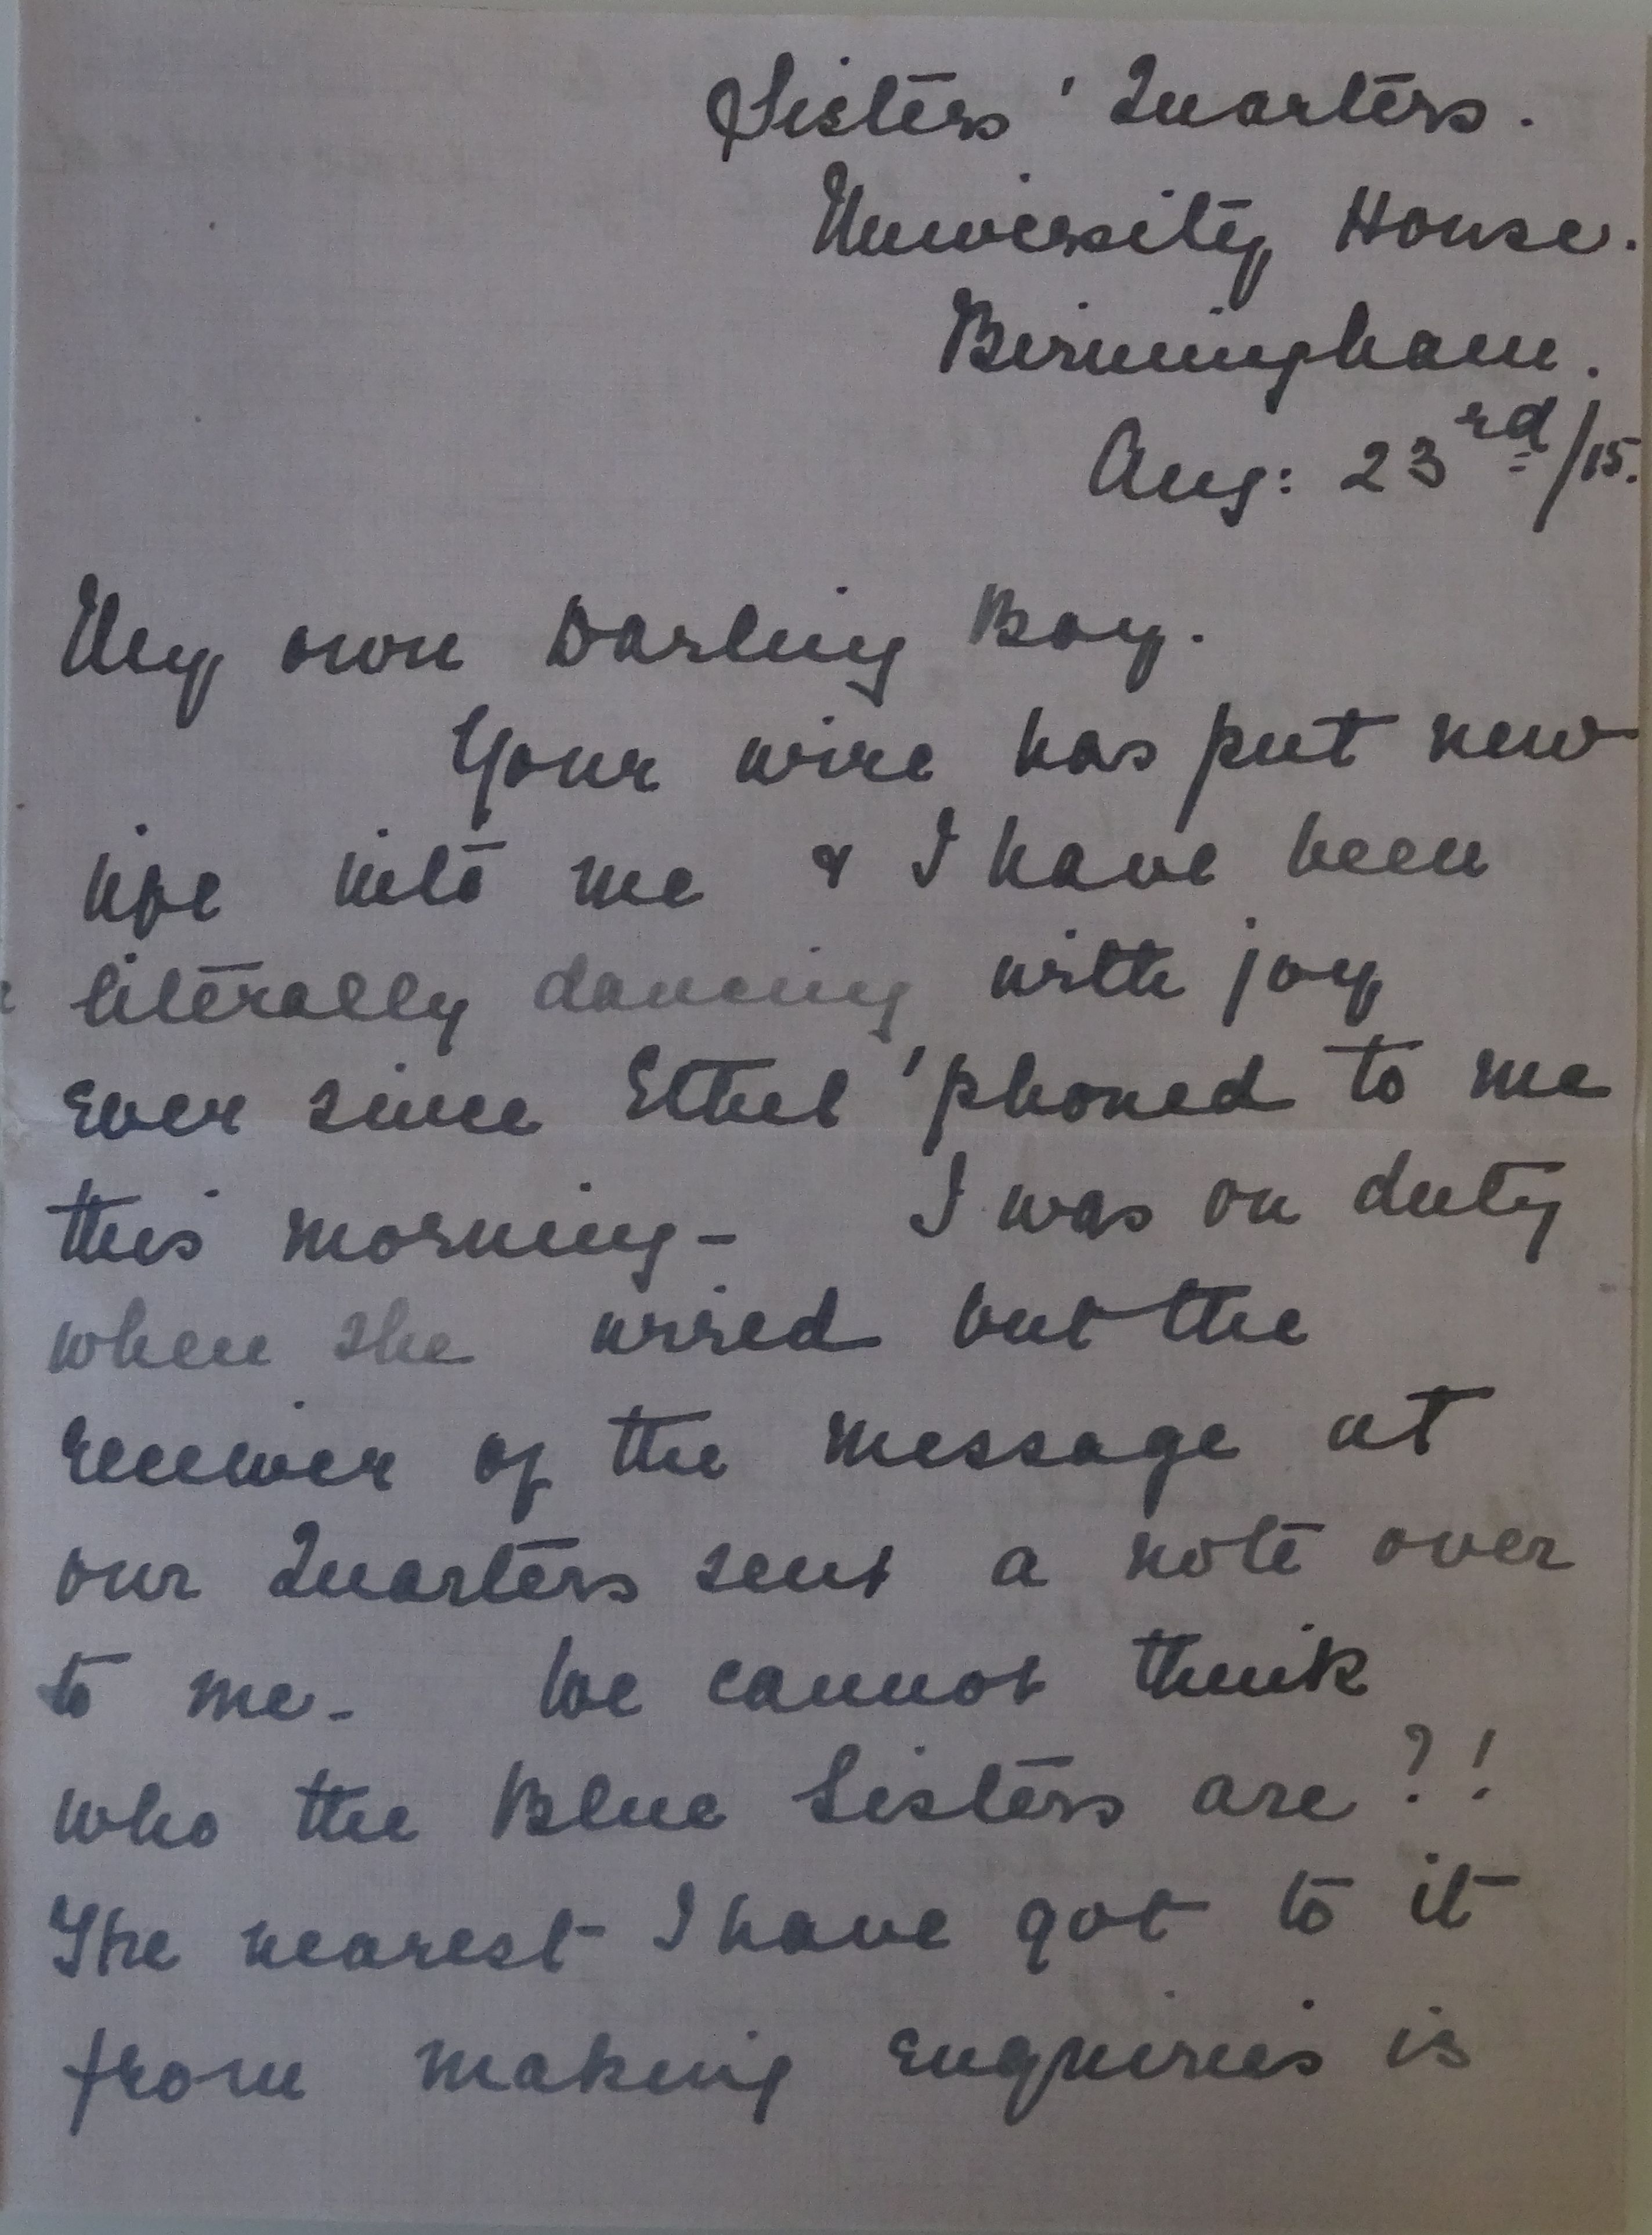 Sisters' Quarters.
University House.
Birmingham.
Aug: 23rd/15.
My own Darling Boy.
Your wire has put new
life into me & I have been
literally dancing with joy
ever since Ethel 'phoned to me
this morning - I was on duty
when she wired but the
receiver of the message at
our Quarters sent a note over
to me - We cannot think
who the Blue Sisters are ?!
The nearest I have got to it
from making enquiries is